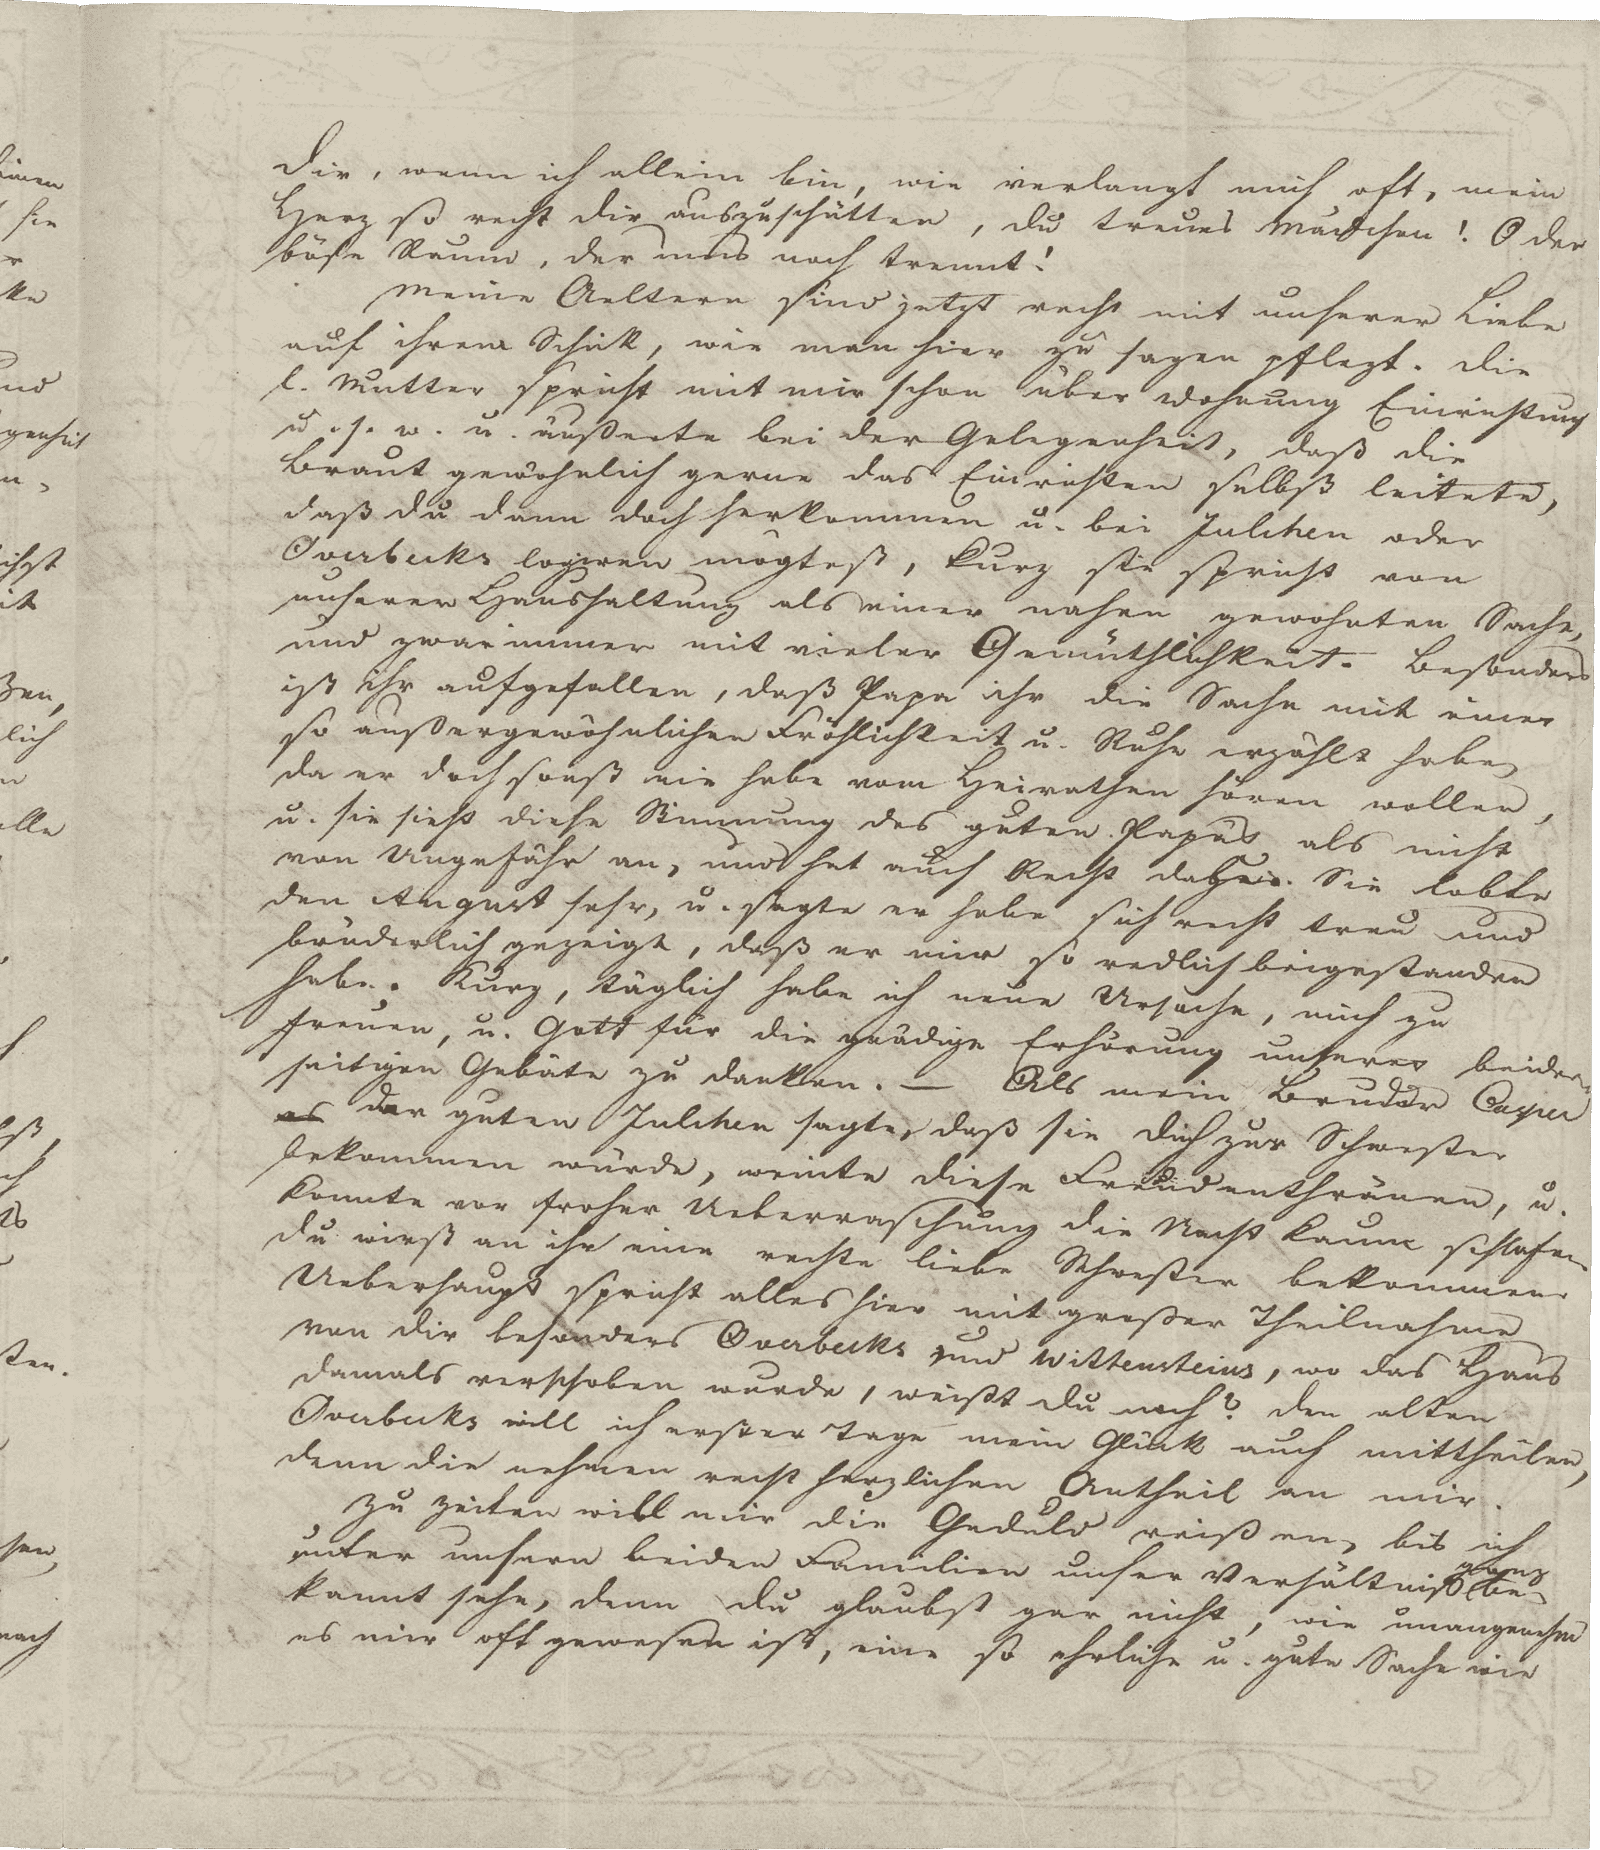 Dir, wenn ich allein bin, wie verlangt mich oft, mein
Herz so recht dir auszuschütten, du treues Mädchen! O der
böse Raum, der uns noch trennt!
Meine Aeltern sind jetzt recht mit unserer Liebe
auf ihrem Schick, wie man hier zu sagen pflegt. Die
l. Mutter spricht mit mir schon über Wohnung Einrichtung
u. s. w. u. äußerte bei der Gelegenheit, daß die
Braut gewöhnlich gerne das Einrichten selbst leitete,
daß du dann doch herkommen u. bei Julchen oder
Overbecks logiren mögtest, kurz sie spricht von
unserer Haushaltung als einer nahen gewohnten Sache,
und zwar immer mit vieler Gemüthlichkeit. Besonders
ist ihr aufgefallen, daß Papa ihr die Sache mit einer
so außergewöhnlichen Fröhlichkeit u. Ruhe erzählt habe,
da er doch sonst nie habe vom Heirathen hören wollen,
u. sie sieht diese Stimmung des guten Papa's als nicht
von Ungefähr an, und hat auch Recht daher. Sie lobte
den August sehr, u. sagte er habe sich recht treu und
brüderlich gezeigt, daß er mir so redlich beigestanden
habe. Kurz, täglich habe ich neue Ursache, mich zu
freuen, u. Gott für die gnädige Erhörung unserer beider-
seitigen Gebäte zu danken. — Als mein Bruder Casper
es der guten Julchen sagte, daß sie dich zur Schwester
bekommen würde, weinte diese Freudenthränen, u.
konnte vor froher Ueberraschung die Nacht kaum schlafen.
du wirst an ihr eine rechte liebe Schwester bekommen.
Ueberhaupt spricht alles hier mit großer Theilnahme
von dir besonders Overbecks und Wittensteins, wo das Haus
damals verschoben wurde, weißt du noch? den alten
Overbecks will ich erster Tage mein Glück auch mittheilen,
denn die nehmen recht herzlichen Antheil an mir.
Zu Zeiten will mir die Geduld reißen, bis ich
unter unsern beiden Familien unser Verhältniß ganz be-
kannt sehe, denn du glaubst gar nicht, wie unangenehm
es mir oft gewesen ist, eine so ehrliche u. gute Sache wie